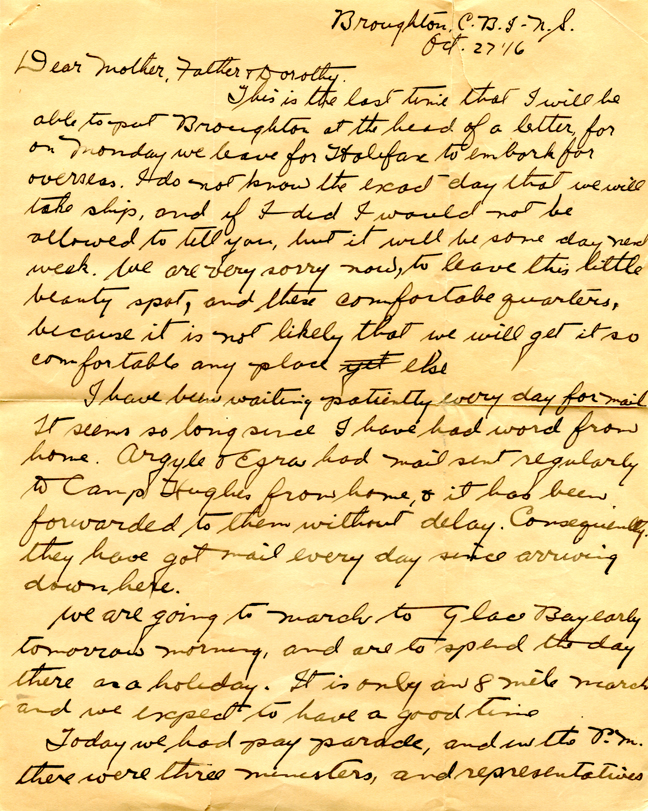 Broughton, C.B.I- N.S.
Oct. 27 '16
Dear Mother, Father & Dorothy.
This is the last time that I will be
able to put Broughton at the head of a letter, for
on Monday we leave for Halifax to embark for
overseas. I do not know the exact day that we will
take ship, and if I did I would not be
allowed to tell you, but it will be some day next
week. We are very sorry now, to leave this little
beauty spot, and these comfortabe quarters,
because it is not likely that we will get it so
comfortable any place yet else
I have been waiting patiently every day for mail
It seems so long since I have had word from
home. Argyle & Ezra had mail sent regularly
to Camp Hughes from home, & it has been
forwarded to them without delay. Consequently,
they have got mail every day since arriving
down here.
We are going to march to Glace Bay early
tomorrow morning, and are to spend the day
there as a holiday. It is only an 8 mile march
and we expect to have a good time
Today we had pay parade, and in the P.M.
there were three ministers, and representatives